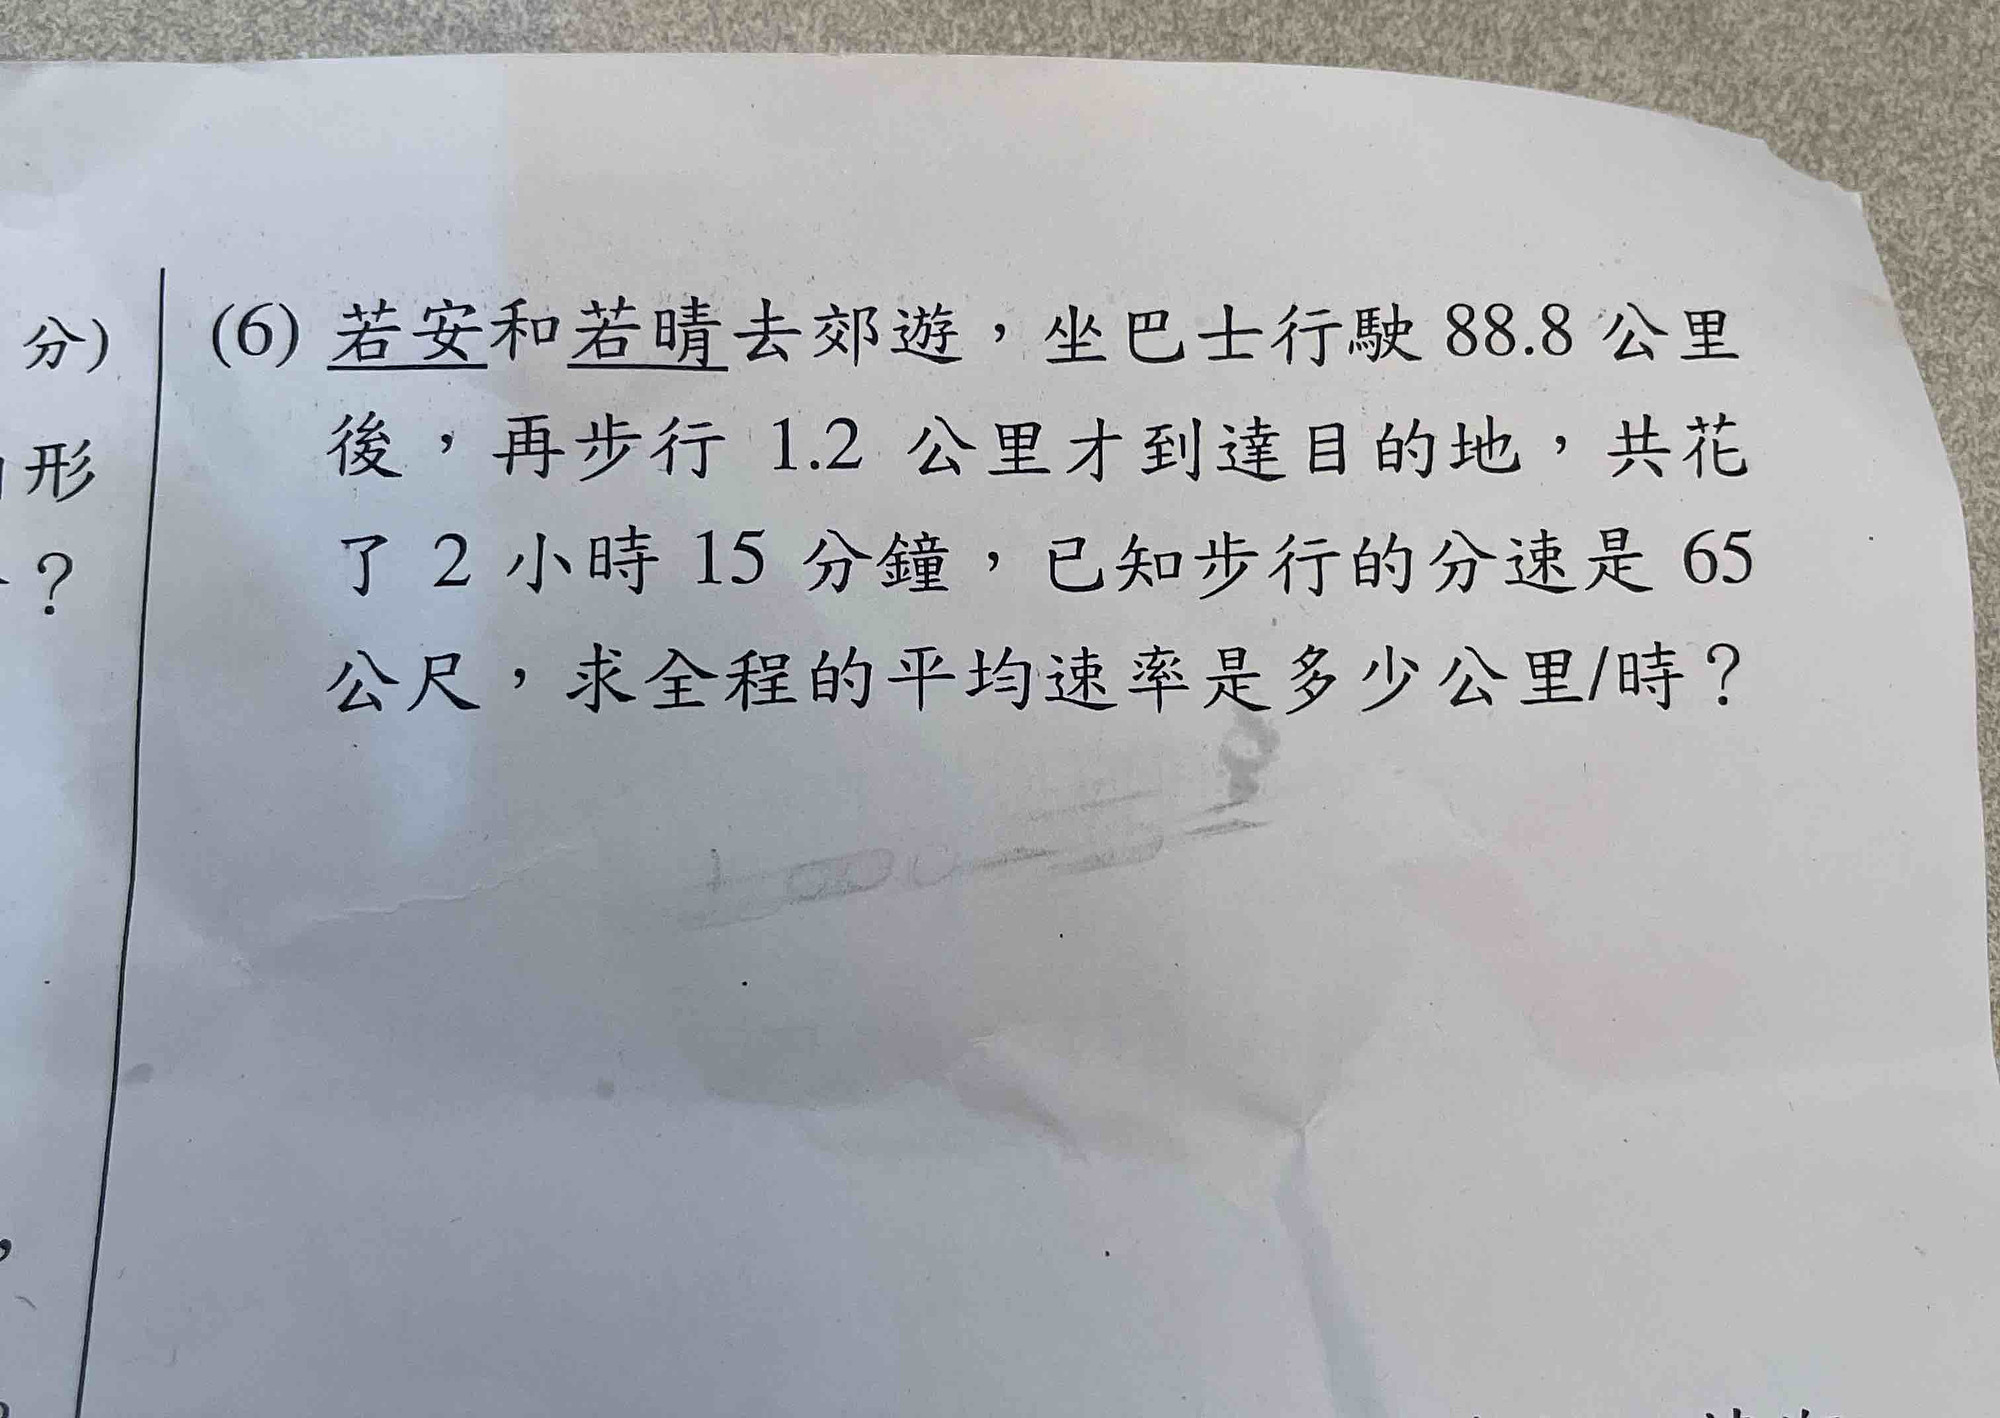 分)
形
?
,
(6) 若安和若晴去郊遊，坐巴士行駛 88.8 公里
後，再步行 1.2 公里才到達目的地，共花
了 2 小時 15 分鐘，已知步行的分速是 65
公尺，求全程的平均速率是多少公里/時？